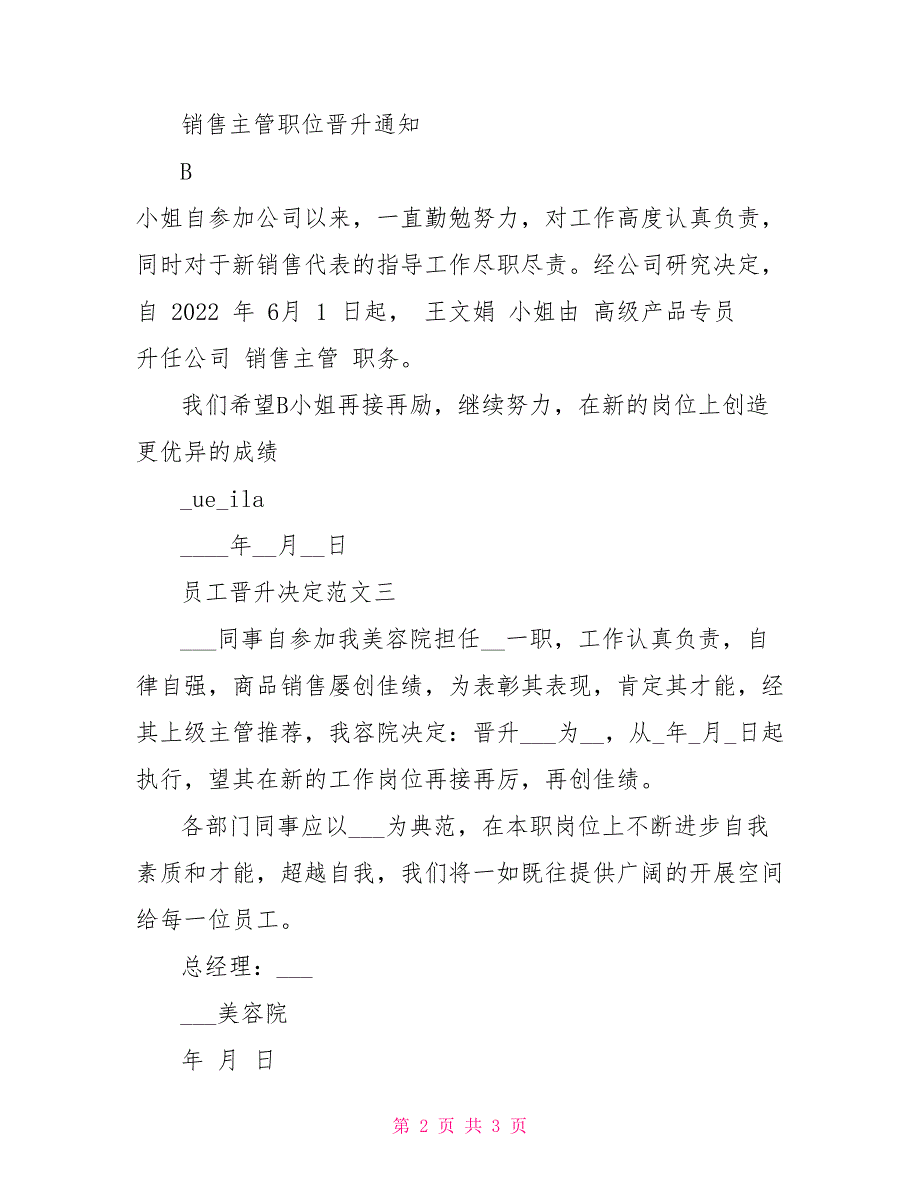 销售主管职位晋升通知
B
小姐自参加公司以来，一直勤勉努力，对工作高度认真负责，
同时对于新销售代表的指导工作尽职尽责。经公司研究决定，
自 2022 年 6月 1 日起， 王文娟 小姐由 高级产品专员
升任公司 销售主管 职务。
我们希望B小姐再接再励，继续努力，在新的岗位上创造
更优异的成绩
_ue_ila
____年__月__日
员工晋升决定范文三
___同事自参加我美容院担任__一职，工作认真负责，自
律自强，商品销售屡创佳绩，为表彰其表现，肯定其才能，经
其上级主管推荐，我容院决定：晋升___为__，从_年_月_日起
执行，望其在新的工作岗位再接再厉，再创佳绩。
各部门同事应以___为典范，在本职岗位上不断进步自我
素质和才能，超越自我，我们将一如既往提供广阔的开展空间
给每一位员工。
总经理：___
___美容院
年 月 日
第 2 页 共 3 页